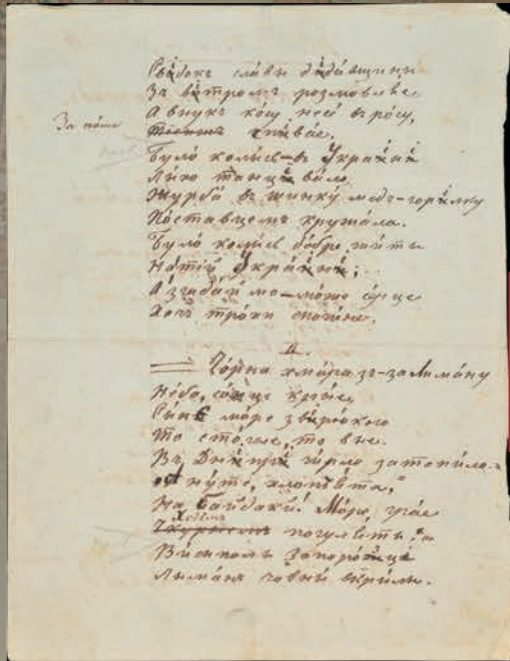 Свѣдокъ славы дѣдывщины
Зъ вѣтромъ розмовляе.
А внукъ косу несе въ росу,
За ними спѣвае.
Було колысь—въ Украинѣ
Лыхо танцѣвало,
Журба въ шинку медъ-горѣлку
Поставцемъ кружала.
Було колысь добре жыты
На тій Украинѣ;
А згадаймо—може серце
Хочъ трохи спочыне.
II.
Чорна хмара зъ-за Лиману
Небо, сонце крые,
Сыне море звѣрюкою
То стогне, то вые.
Въ Днѣпрѣ гырло затопыло.
„Нуте, хлопьята,
На байдаки! Море грае
Ходѣмъ погуляты!“
Высыпалы запорожцѣ
Лыманъ човны вкрылы.